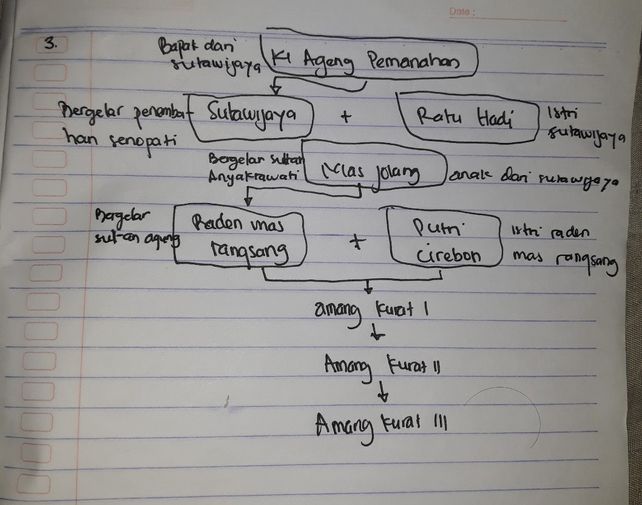 Date :
3.
Bapak dari
sutawijaya
Ki Ageng Pemanahan
Bergelar penemba
han senopati
Sutawijaya
+
Ratu Hadi
Istri
sutawijaya
Bergelar sultan
Anyakrawati
Mas jolang
anak dari sutawijaya
Bergelar
sultan agung
Raden mas
rangsang
+
Putri
cirebon
Istri raden
mas rangsang
amang kurat I
Amang kurat II
Amang kurat III